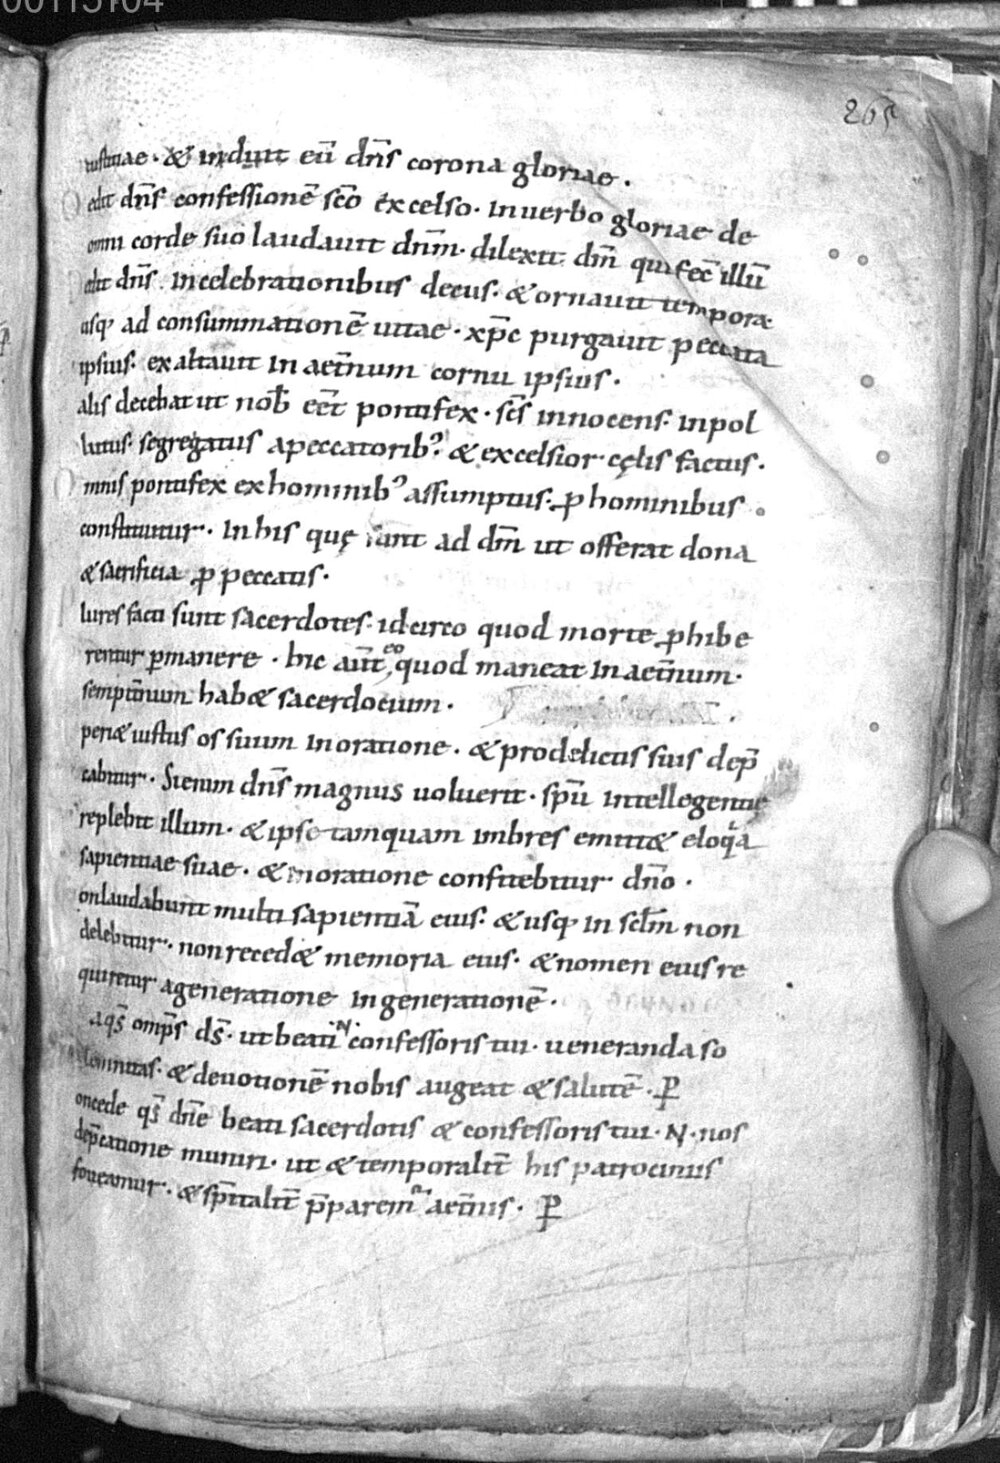 00115104
265
iustitiae · & induit eū dn̄s corona gloriae ·
edit dn̄s confessionē sc̄o excelso · In uerbo gloriae de
omni corde suo laudauit dn̄m · dilexit dm̄ qui fec̄ illū
edit dn̄s In celebrationibus decus · & ornauit tempora
usq; ad consummationē uitae · xp̄c purgauit peccata
ipsius · exaltauit In aet̄num cornu ipsius ·
alis decebat ut nob̄ ēet pontifex · sc̄s innocens · inpol
lutus · segregatus a peccatorib; & excelsior cęlis factus ·
mnis pontifex ex hominib; assumptus · ꝓ hominibus
constituitur · In his quę sunt ad dm̄ ut offerat dona
& sacrificia ꝓ peccatis ·
lures facti sunt sacerdotes · idcirco quod morte ꝓhibe
rentur ꝑmanere · hic aūt eo quod maneat In aet̄num ·
sempit̄num hab& sacerdotium ·
peri& iustus os suum In oratione · & pro delictis suis dep̄
cabitur · Si enim dn̄s magnus uoluerit · spū Intellegentiae
replebit illum · & ipse tamquam imbres emitt& eloqia
sapientiae suae · & in oratione confitebitur dn̄o ·
onlaudabunt multi sapientiā eius · & usq; in sc̄lm non
delebitur · non reced& memoria eius · & nomen eius re
quiretur a generatione In generationē ·
a qs̄ omp̄s ds̄ · ut beati ·N· confessoris tui · ueneranda so
lemnitas · & deuotionē nobis augeat & salutē · ꝑ
oncede qs̄ dn̄e beati sacerdotis & confessoris tui · N · nos
dep̄catione muniri · ut & temporalit̄ his patrociniis
foueamur · & sp̄italit̄ p̄paremur aet̄nis · ꝑ